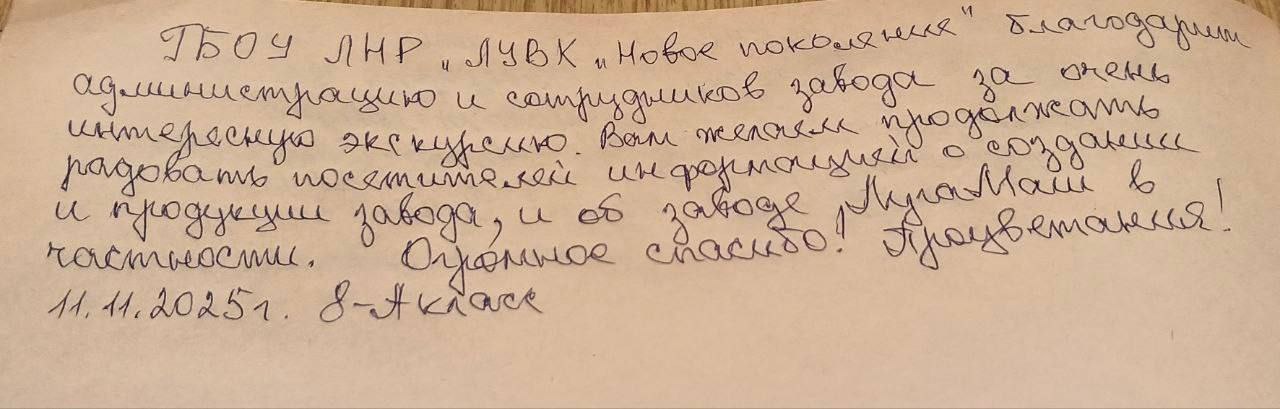 ГБОУ ЛНР „ЛУВК „Новое поколение" благодарит
администрацию и сотрудников завода за очень
интересную экскурсию. Вам желаем продолжать
радовать посетителей информацией о создании
и продукции завода, и об заводе ЛугаМаш в
частности. Огромное спасибо! Процветания!
11.11.2025г. 8-А класс